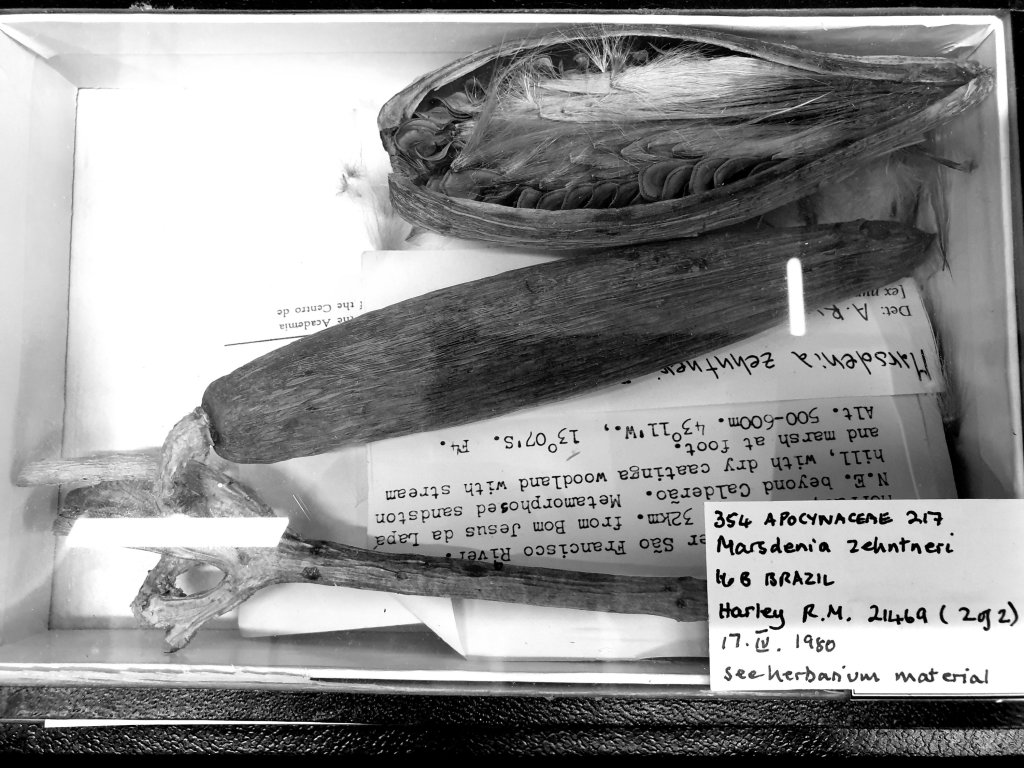 354 APOCYNACEAE 217
Marsdenia zehntneri
16 B BRAZIL
Harley R.M. 21469 (2 of 2)
17. IV. 1980
see herbarium material
er São Francisco River.
32km. from Bom Jesus da Lapa
N.E. beyond Calderão. Metamorphosed sandston
hill, with dry caatinga woodland with stream
and marsh at foot.
Alt. 500-600m. 43°11'W., 13°07'S. F4.
Marsdenia zehntneri
Det: A.R.
[ex
the Academia
f the Centro de